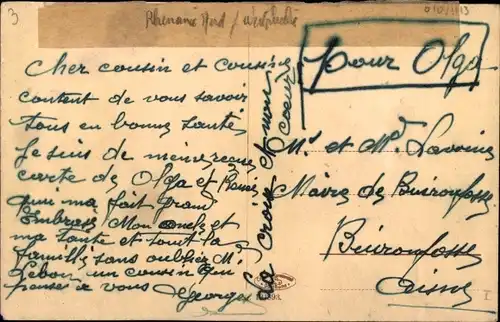 3
Rhenanie Nord / Westphalie
pour Olga
Cher cousin et cousine
content de vous savoir
tous en bonne santé,
Je suis de même reçu
carte de Olga et René
qui m'a fait grand
Embrasse Mon oncle et
ma tante et tout la
famille sans oublier Mr
Lebon, un cousin qui
pense a vous Georges
La croix et mon
coeur
Mr et Md Lavoine
Maire de Buironfosse
Buironfosse
Aisne